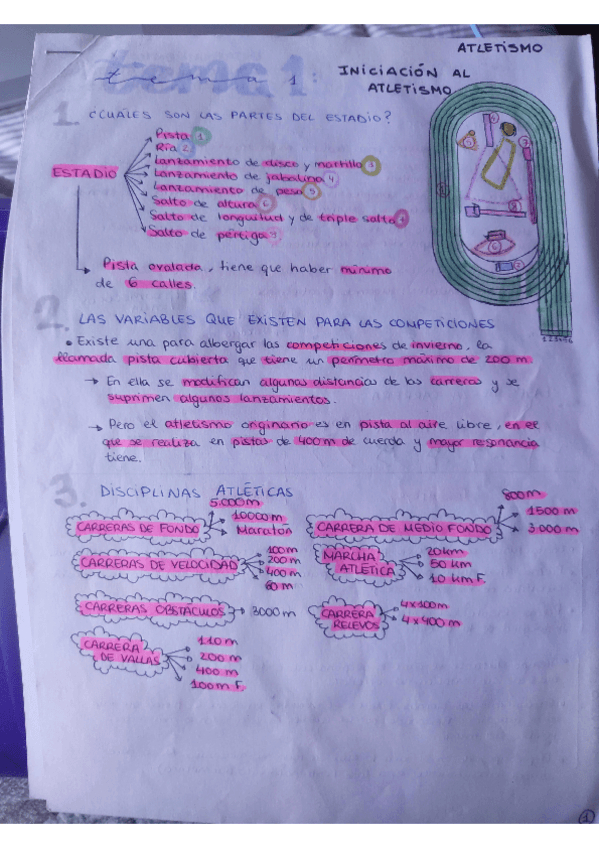 ATLETISMO
tema 1: INICIACIÓN AL
ATLETISMO
1. ¿CUÁLES SON LAS PARTES DEL ESTADIO?
ESTADIO
Pista 1
Ría 2
Lanzamiento de disco y martillo 3
Lanzamiento de jabalina 4
Lanzamiento de peso 5
Salto de altura 6
Salto de longuitud y de triple salto
Salto de pértiga
Pista ovalada, tiene que haber mínimo
de 6 calles.
2. LAS VARIABLES QUE EXISTEN PARA LAS COMPETICIONES
• Existe una para albergar las competiciones de invierno, la
llamada pista cubierta que tiene un perímetro máximo de 200 m.
→ En ella se modifican algunas distancias de las carreras y se
suprimen algunos lanzamientos.
→ Pero el atletismo originario es en pista al aire libre, en el
que se realiza en pistas de 400 m de cuerda y mayor resonancia
tiene.
3. DISCIPLINAS ATLÉTICAS
CARRERAS DE FONDO
5.000m
10000 m
Maratón
CARRERA DE MEDIO FONDO
800m
1500 m
3.000 m
CARRERAS DE VELOCIDAD
100 m
200 m
400 m
60 m
MARCHA
ATLÉTICA
20 km
50 km
10 km F.
CARRERAS OBSTÁCULOS → 3000 m
CARRERA
RELEVOS
4x100m
4x400m
CARRERA
DE VALLAS
110 m
200 m
400 m
100m F.
1